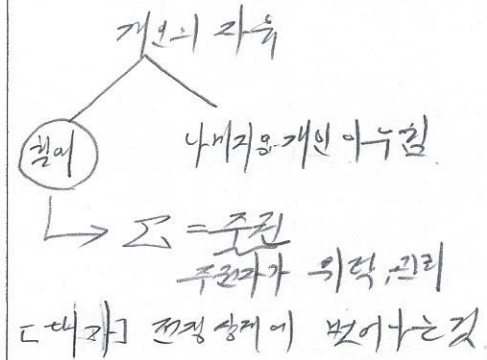 개인의 자유
할애 나머지는 개인이 누림
Σ = 주권
주권자가 위탁, 관리
[대가] 전쟁상태에 벗어나는 것